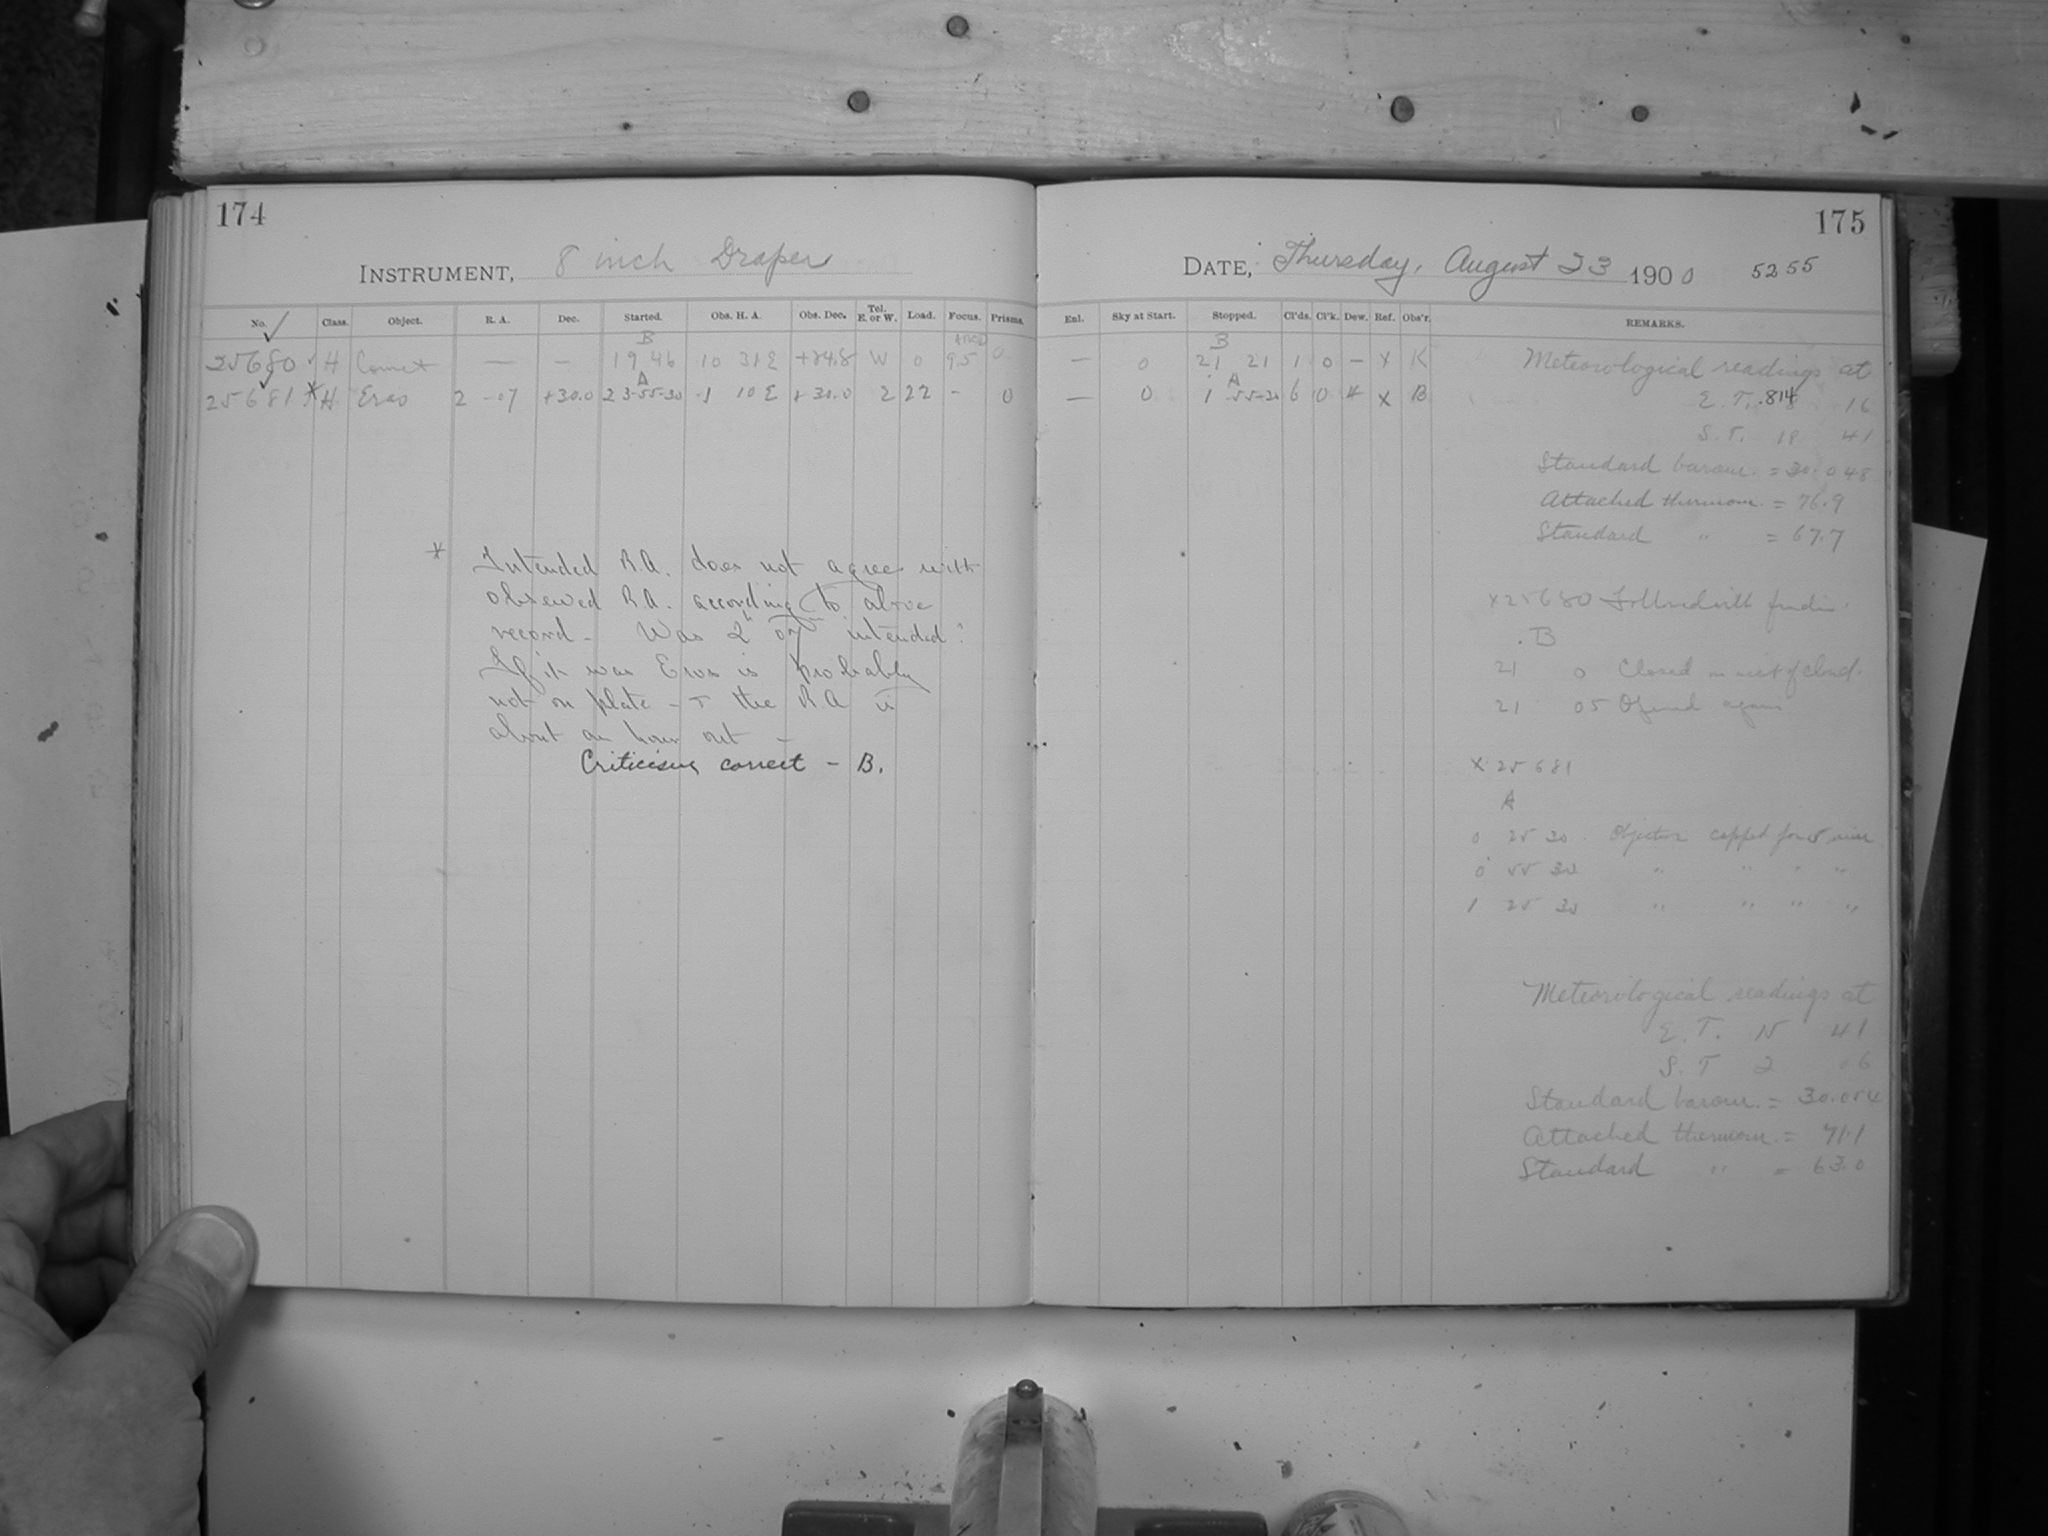 174
INSTRUMENT, 8 inch Draper
No. Class. Object. R. A. Dec. Started. Obs. H. A. Obs. Dec. Tel. E. or W. Load. Focus. Prisms
B
25680 H Comet — — 19 46 10 31 E +74.8 W 0 95 0
A
25681 * H Eros 2 -07 +30.0 23-55-30 -1 10 E +30.0 E 22 - 0
* Intended R.A. does not agree with
observed R.A. according to above
record - Was 2h 07m intended?
If it was Eros is probably
not on plate - & the RA is
about an hour out -
Criticism correct - B.
175
DATE, Thursday, August 23 1900 5255
Enl. Sky at Start. Stopped. Cl'ds. Cl'k. Dew. Ref. Obs'r. REMARKS.
B
— 0 21 21 1 0 - x K
A
— 0 1 55-30 6 0 4 x B
Meteorological readings at
E. T. .814 16
S. T. 18 41
Standard barom. = 30.048
Attached thermom. = 76.9
Standard " = 67.7
x 25680 Followed with finder.
B
21 0 Closed on acct of cloud.
21 05 Opened again
x 25681
A
0 25 30 Objective capped for 5 min
0 55 30 " " " "
1 25 30 " " " "
Meteorological readings at
E. T. 15 41
S. T 2 06
Standard barom. = 30.054
Attached thermom. = 71.1
Standard " = 63.0